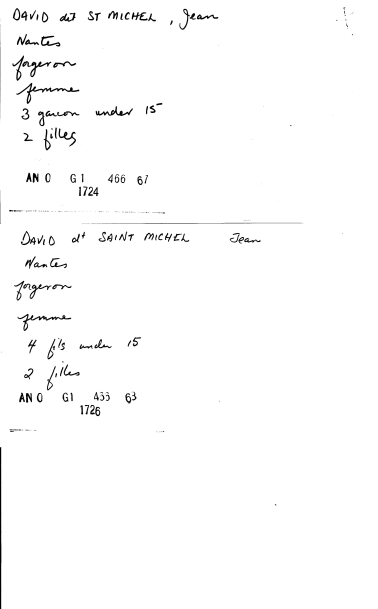 DAVID dit ST MICHEL, Jean
Nantes
forgeron
femme
3 garcon under 15
2 filles
AN O G 1 466 67
1724
DAVID dt SAINT MICHEL Jean
Nantes
forgeron
femme
4 fils under 15
2 filles
AN O G1 466 63
1726